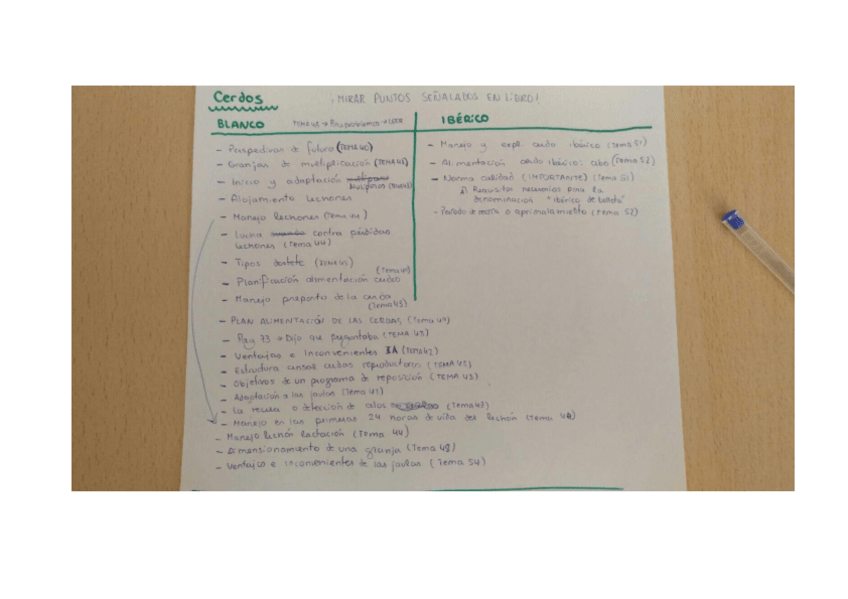 Cerdos
¡MIRAR PUNTOS SEÑALADOS EN LIBRO!
BLANCO
IBÉRICO
- Perspectivas de futuro (TEMA 40)
- Granjas de multiplicación (TEMA 48)
- Inicio y adaptación
- Alojamiento lechones
- Manejo lechones (Tema 44)
- Lucha contra pérdidas
lechones (Tema 44)
- Tipos destete (TEMA 45)
- Planificación alimentación
- Manejo preparto de la cerda
(Tema 43)
- PLAN ALIMENTACIÓN DE LAS CERDAS (Tema 49)
- Pag 73 → Dijo que preguntaba (TEMA 43)
- Ventajas e Inconvenientes IA (TEMA 42)
- Estructura censal cerdas reproductoras (TEMA 43)
- Objetivos de un programa de reposición (TEMA 43)
- Adaptación a las jaulas (Tema 43)
- La recela o detección de celos (Tema 43)
- Manejo en las primeras 24 horas de vida del lechón (Tema 44)
- Manejo lechón lactación (Tema 44)
- Dimensionamiento de una granja (Tema 48)
- Ventajas e inconvenientes de las jaulas (Tema 54)
- Manejo y expl. cerdo ibérico (Tema 51)
- Alimentación cerdo ibérico: cebo (Tema 52)
- Norma calidad (IMPORTANTE) (Tema 51)
Requisitos necesarios para la
denominación "ibérico de bellota"
- Periodo de recría o aprimalamiento (Tema 52)